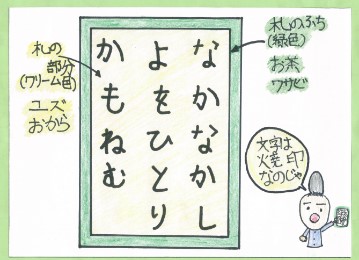 なかなかし
よをひとり
かもねむ
札のふち
(緑色)
お茶
ワサビ
札の
部分
(クリーム色)
ユズ
おから
文字は
焼印
なのじゃ